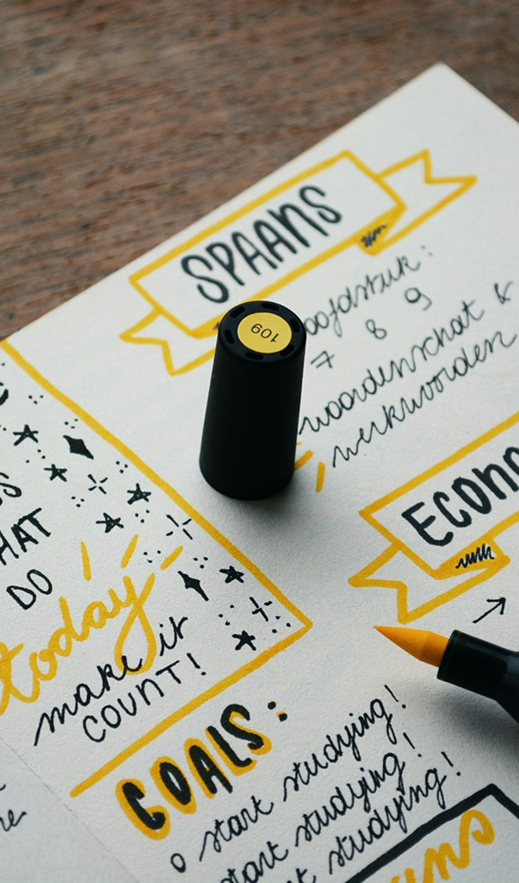 SPAANS
7 8 9
woordenschat &
werkwoorden
109
DO
today
make it
COUNT!
GOALS:
o start studying!
start studying!
studying!